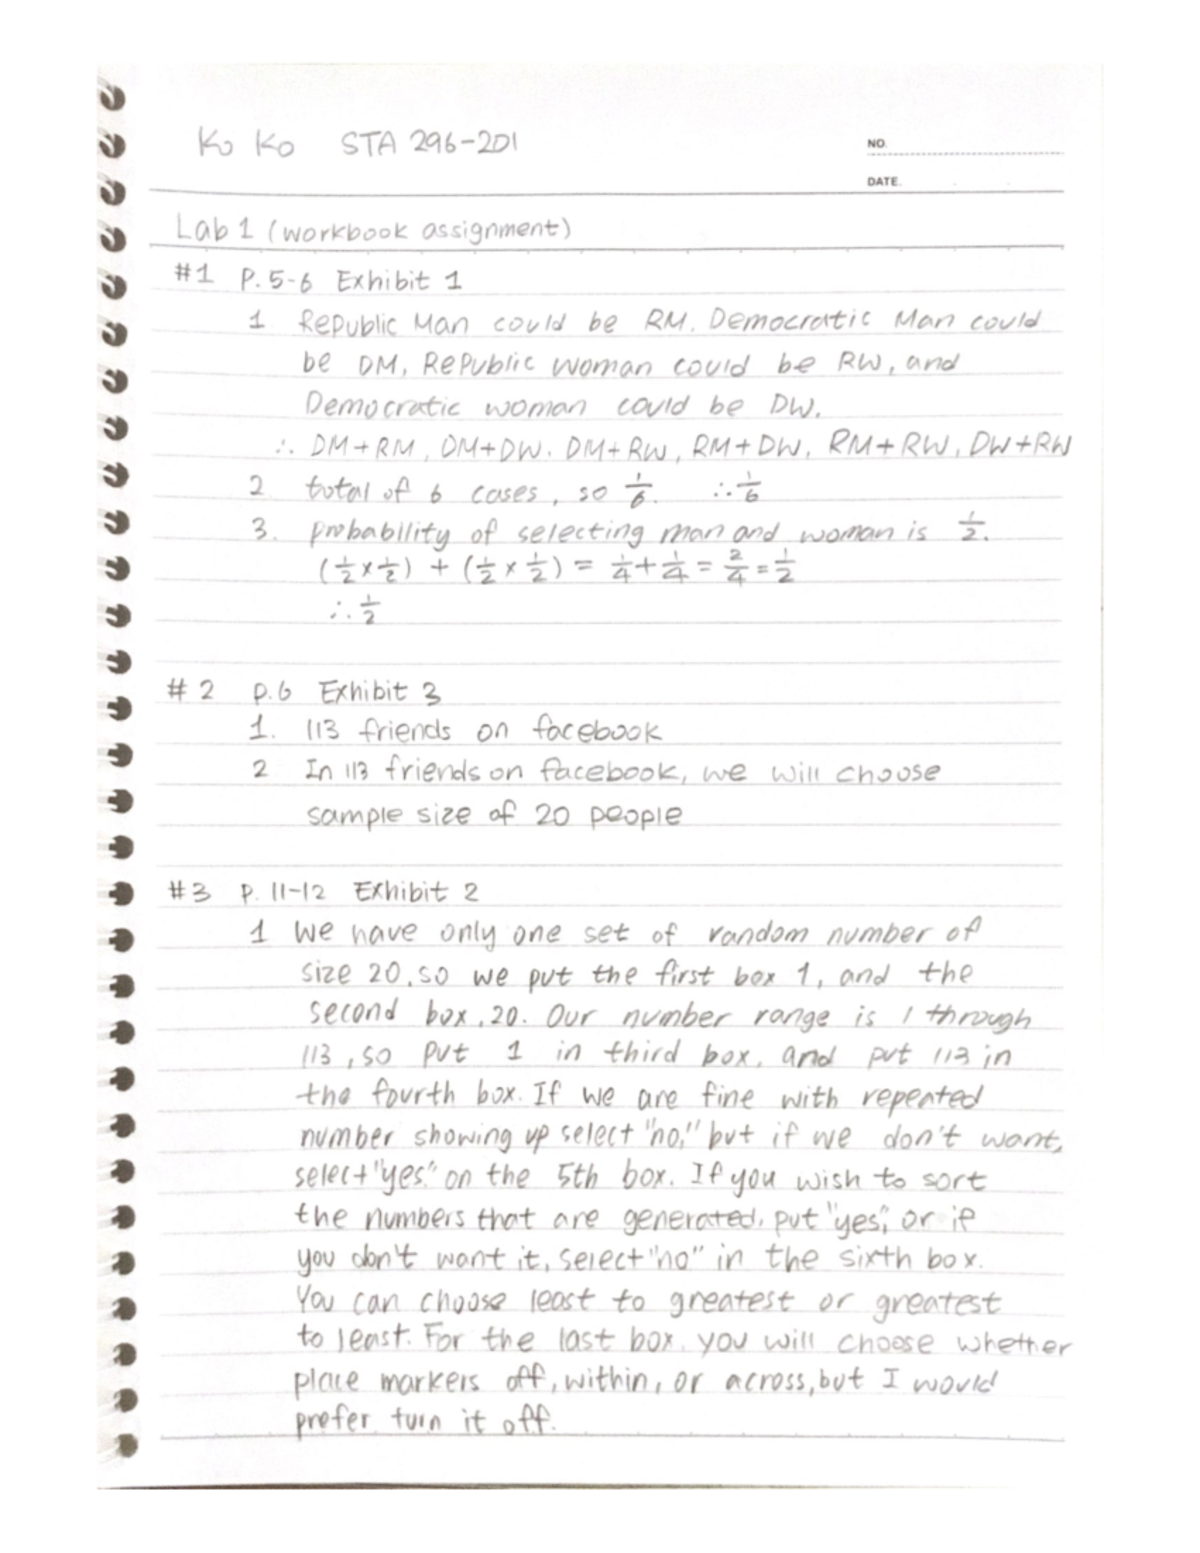 Ko Ko STA 296-201
NO.
DATE.
Lab 1 (workbook assignment)
#1 P. 5-6 Exhibit 1
1 Republic Man could be RM. Democratic Man could
be DM, Republic woman could be RW, and
Democratic woman could be DW.
∴ DM+RM, DM+DW. DM+RW, RM+DW, RM+RW, DW+RW
2 total of 6 cases, so 1/6. ∴ 1/6
3. probability of selecting man and woman is 1/2.
(1/2 × 1/2) + (1/2 × 1/2) = 1/4 + 1/4 = 2/4 = 1/2
∴ 1/2
#2 p.6 Exhibit 3
1. 113 friends on facebook
2 In 113 friends on facebook, we will choose
sample size of 20 people
#3 P. 11-12 Exhibit 2
1 We have only one set of random number of
size 20, so we put the first box 1, and the
second box, 20. Our number range is 1 through
113, so put 1 in third box. and put 113 in
the fourth box. If we are fine with repented
number showing up select "no," but if we don't want,
select "yes." on the 5th box. If you wish to sort
the numbers that are generated, put "yes," or if
you don't want it, select "no" in the sixth box.
You can choose least to greatest or greatest
to least. For the last box, you will choose whether
place markers off, within, or across, but I would
prefer turn it off.